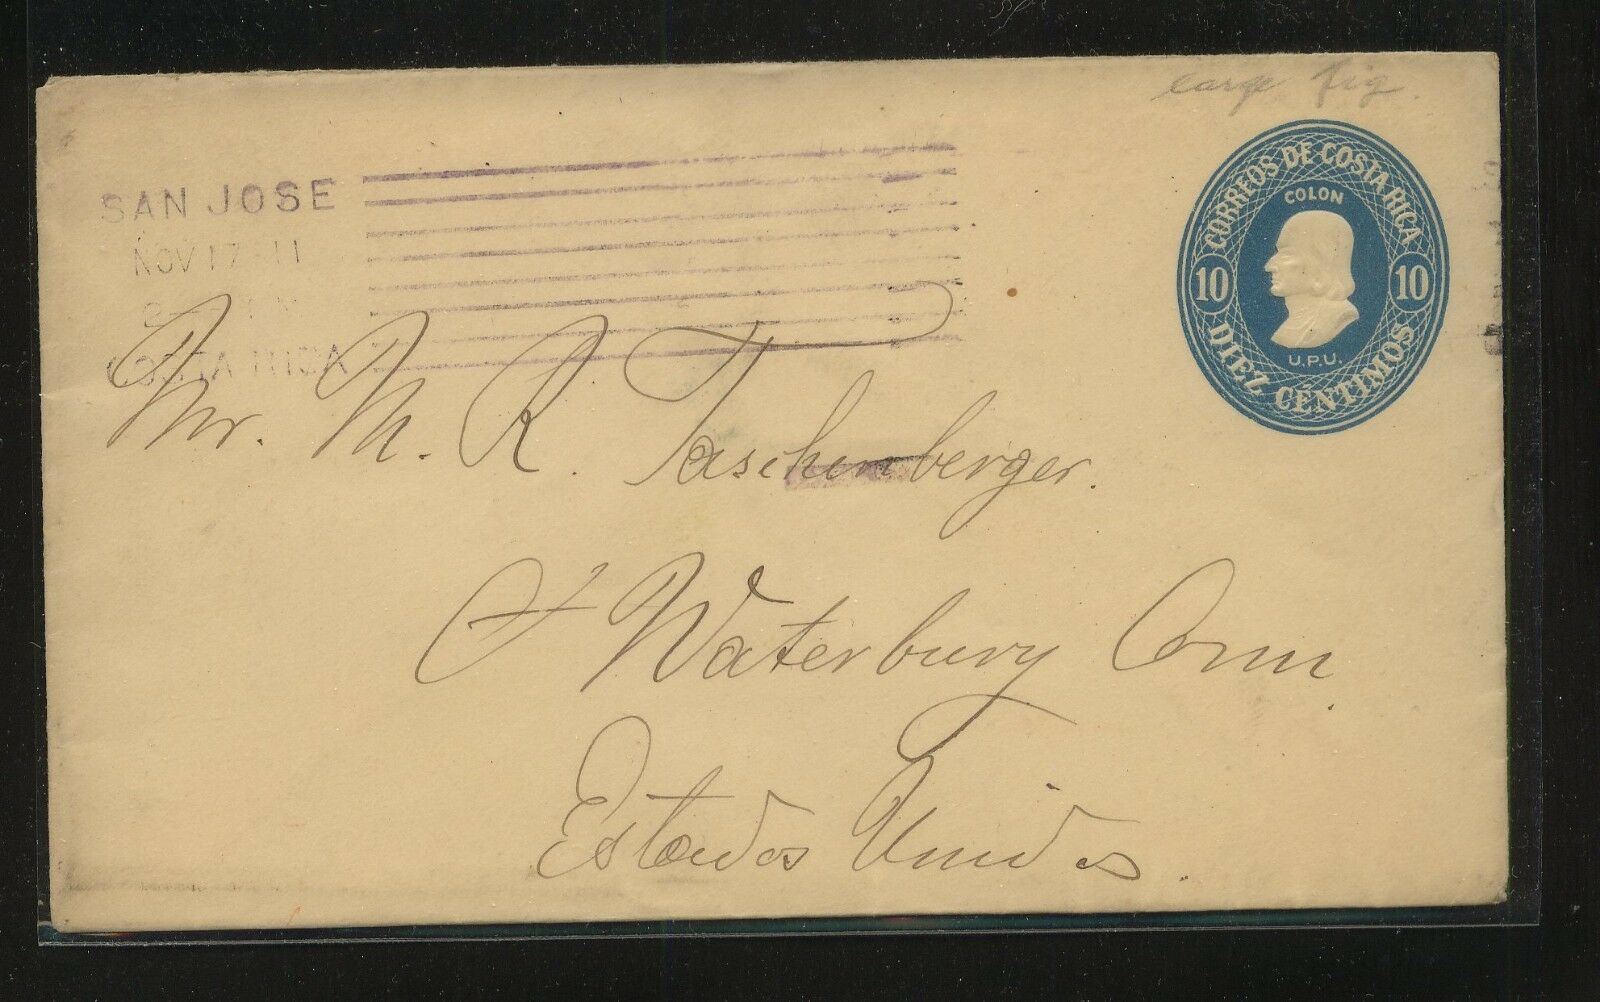 large fig.
CORREOS DE COSTA RICA
COLON
10 10
U.P.U.
DIEZ CÉNTIMOS
SAN JOSE
NOV 17 11
COSTA RICA
Mr. M. R. Taschenberger.
Waterbury Conn
Estados Unidos.